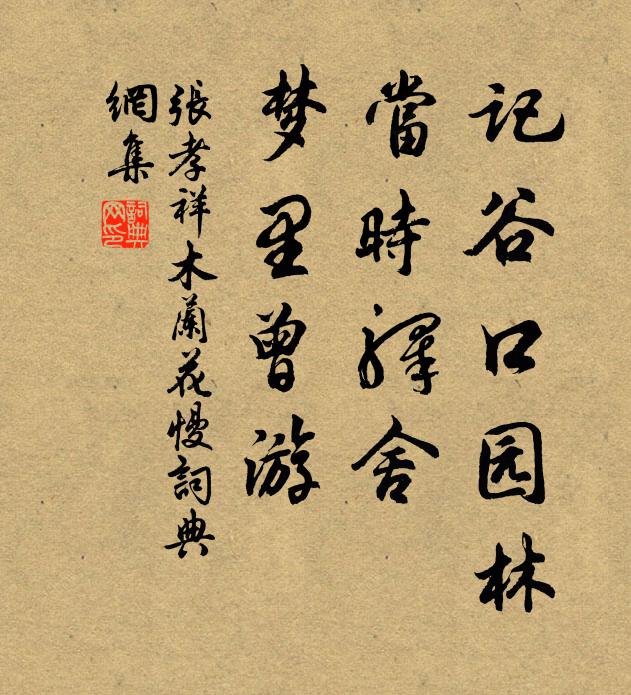 记谷口园林
當時驿舍
梦里曾游
張孝祥木蘭花慢詞典
網集
詞典
网印